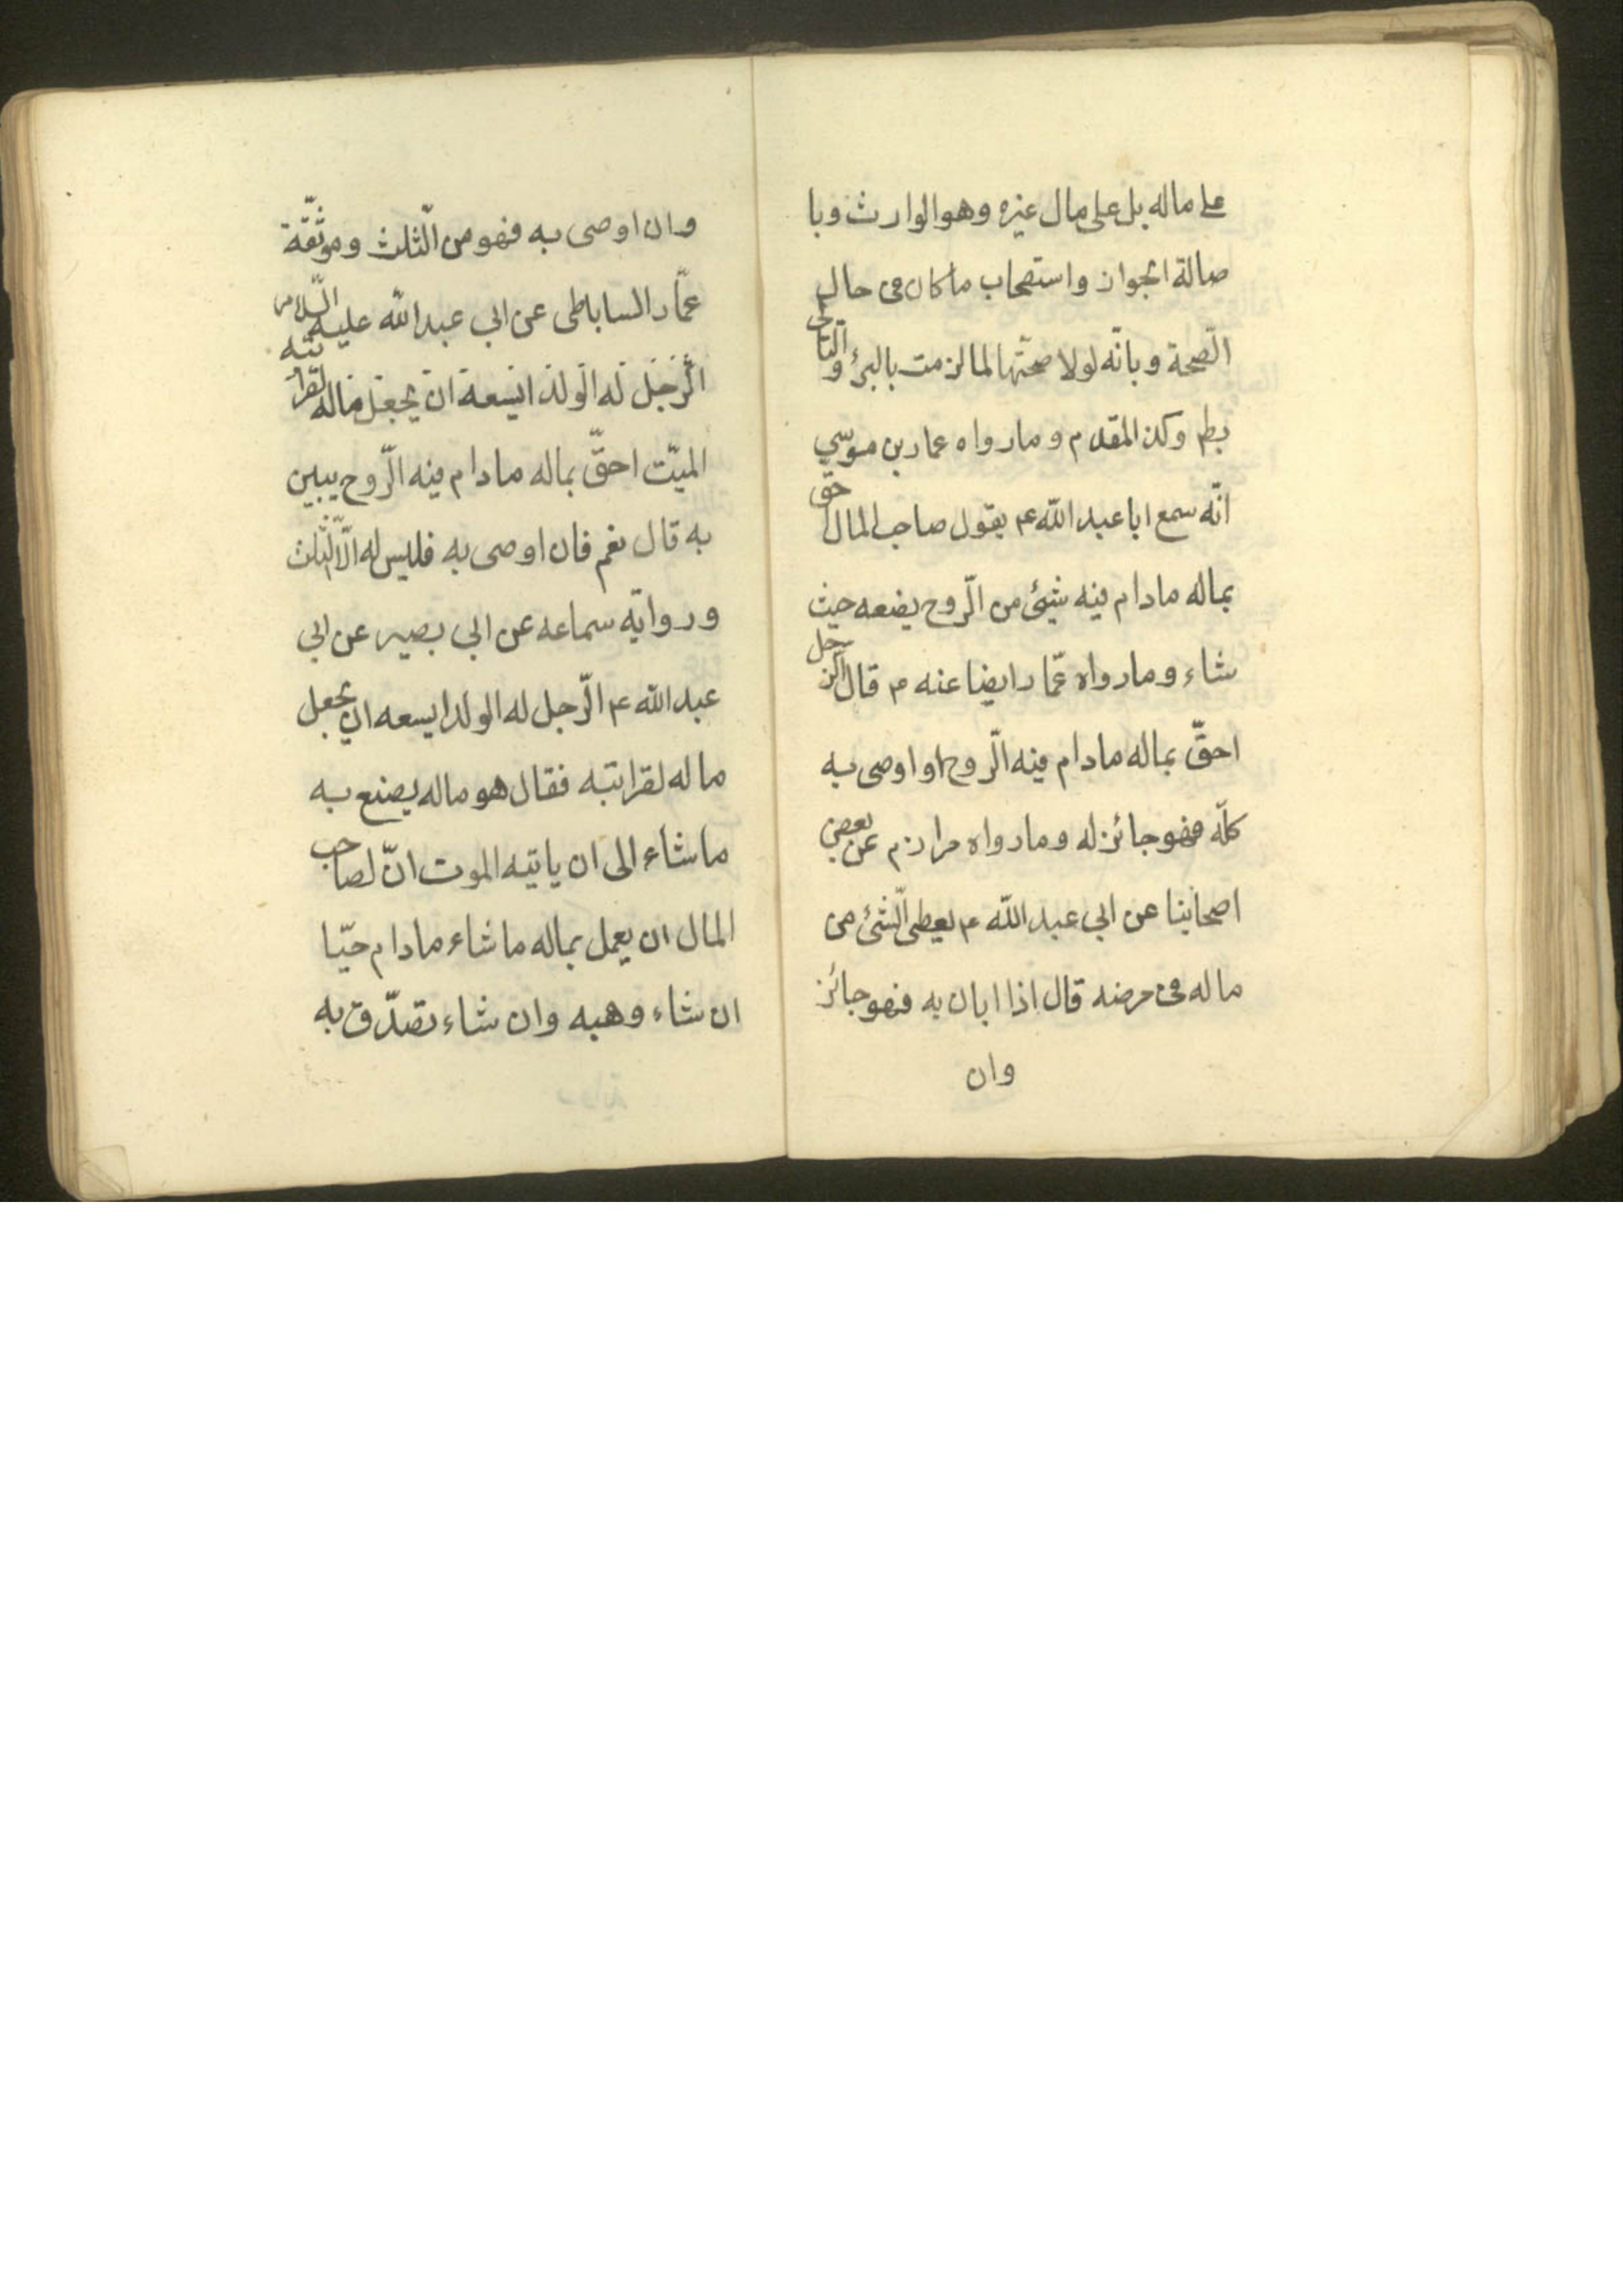 على ماله بل على مال غيره وهو الوارث وبا
صالة الجواز واستصحاب ما كان فى حال
الصحة وبانّه لولا صحتّها لما لزمت بالبرئ والتالى
بطم وكذا المقدم وما رواه عمار بن موسي
انّه سمع ابا عبد اللّه ع يقول صاحب المال احق
بماله مادام فيه شيئ من الرّوح يضعه حيث
شاء وما رواه عمّار ايضا عنه م قال الرّجل
احقّ بماله مادام فيه الرّوح او اوصى به
كلّه فهو جائز له وما رواه مرازم عن بعض
اصحابنا عن ابي عبد اللّه م يعطى الشّئ من
ماله فى مرضه قال اذا ابان به فهو جائز
وان
وان اوصى به فهو من الثّلث وموثّقة
عمّار الساباطى عن ابي عبد اللّه عليه السّلام
الرّجل له الولد ايسعه ان يجعل ماله لقرابته
الميّت احقّ بماله مادام فيه الرّوح يبين
به قال نعم فان اوصى به فليس له الّا الثّلث
وروايه سماعه عن ابي بصير عن ابي
عبد اللّه ع الرّجل له الولد ايسعه ان يجعل
ماله لقرابته فقال هو ماله يصنع به
ما شاء الى ان ياتيه الموت انّ لصاحب
المال ان يعمل بماله ما شاء مادام حيّا
ان شاء وهبه وان شاء تصدّق به